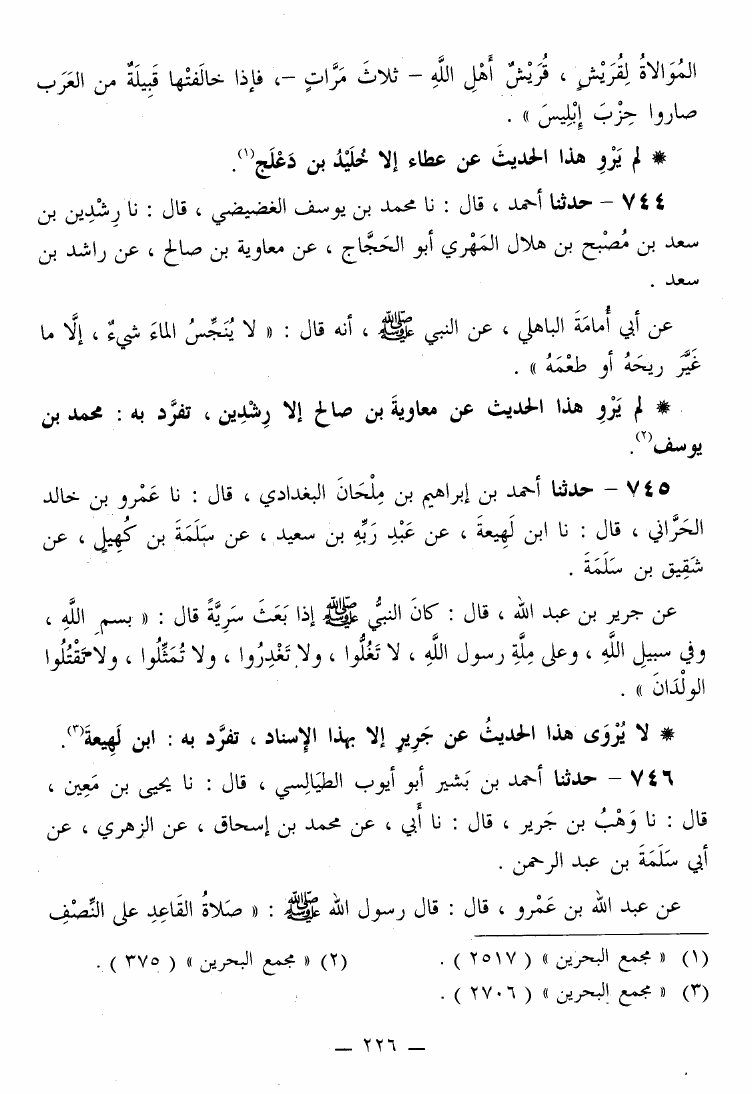 المُوَالاةُ لِقُرَيْشٍ ، قُرَيْشٌ أَهْلِ اللَّهِ – ثلاثَ مَرَّاتٍ –، فإذا خالَفتْها قَبِيلَةٌ من العَرَب
صاروا حِزْبَ إِبْلِيسَ » .
* لم يَرْوِ هذا الحديثَ عن عطاء إلا خُلَيْدُ بن دَعْلَج(١).
٧٤٤ – حدثنا أحمد ، قال : نا محمد بن يوسف الغضيضي ، قال : نا رِشْدِين بن
سعد بن مُصْبح بن هلال المَهْري أبو الحَجَّاج ، عن معاوية بن صالح ، عن راشد بن
سعد .
عن أبي أُمامَةَ الباهلي ، عن النبي ﷺ ، أنه قال : « لا يُنَجِّسُ الماءَ شيءٌ ، إلَّا ما
غَيَّرَ ريحَهُ أو طعْمَهُ » .
* لم يَرْوِ هذا الحديث عن معاويةَ بن صالح إلا رِشْدِين ، تفرَّد به : محمد بن
يوسف(٢).
٧٤٥ – حدثنا أحمد بن إبراهيم بن مِلْحَانَ البغدادي ، قال : نا عَمْرو بن خالد
الحَرَّاني ، قال : نا ابن لَهِيعةَ ، عن عَبْدِ رَبِّهِ بن سعيد ، عن سَلَمَةَ بن كُهِيلٍ ، عن
شَقِيق بن سَلَمَةَ .
عن جرير بن عبد الله ، قال : كانَ النبيُّ ﷺ إذا بَعَثَ سَرِيَّةً قال : « بسمِ اللَّهِ ،
وفي سبيلِ اللَّهِ ، وعلى مِلَّةِ رسول اللَّهِ ، لا تَغُلُّوا ، ولا تَغْدِرُوا ، ولا تُمَثِّلُوا ، ولا تَقْتُلُوا
الولْدَانَ » .
* لا يُرْوَى هذا الحديثُ عن جَرِيرٍ إلا بهذا الإسناد ، تفرَّد به : ابن لَهِيعةَ(٣).
٧٤٦ – حدثنا أحمد بن بَشير أبو أيوب الطيَالِسي ، قال : نا يحيى بن مَعِين ،
قال : نا وَهْبُ بن جَرير ، قال : نا أَبي ، عن محمد بن إسحاق ، عن الزهري ، عن
أبي سَلَمَةَ بن عبد الرحمن .
عن عبد الله بن عَمْرو ، قال : قال رسول الله ﷺ : « صَلاةُ القَاعِدِ على النِّصْفِ
(١) « مجمع البحرين » ( ٢٥١٧ ) . (٢) « مجمع البحرين » ( ٣٧٥ ) .
(٣) « مجمع البحرين » ( ٢٧٠٦ ) .
– ٢٢٦ –